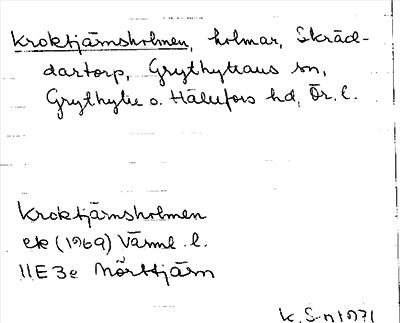 Kroktjärnsholmen, holmar, Skräd-
dartorp, Grythyttans sn,
Grythytte o. Hällefors hd, Ör. l.
Kroktjärnsholmen
ek (1969) Värml. l.
11E 3e Nörttjärn
K. S-n 1971